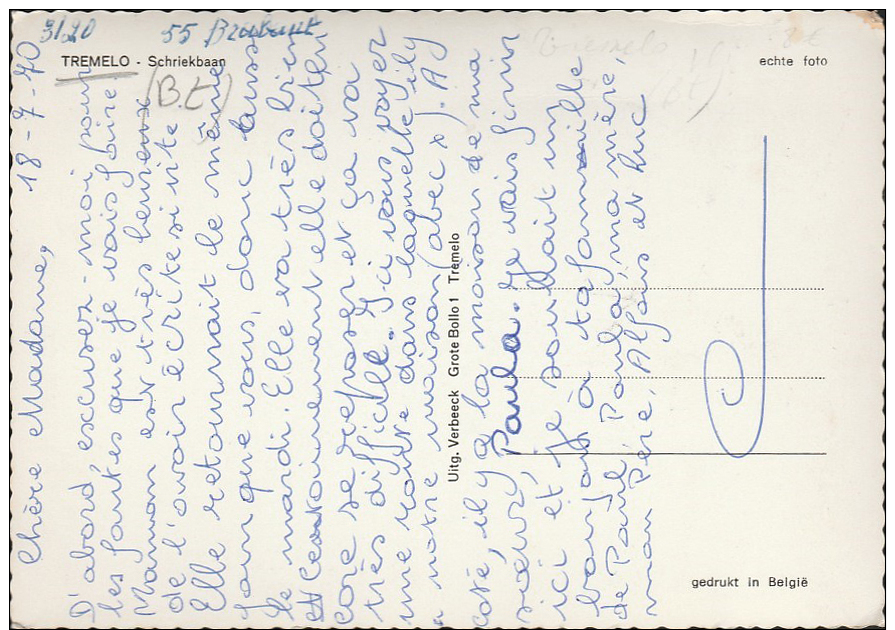 3/20
55 Brabant
TREMELO - Schriekbaan
(B.t)
echte foto
18-7-70
Chère Madame,
D'abord, excusez-moi pour
les fautes que je vais faire.
Maman est très heureux
de l'avoir écrite si vite.
Elle retournait le même
jour que vous, donc aussi
le mardi. Elle va très bien
et certainement elle doit en
core se reposer et ça va
très difficile. Ici vous voyer
une route dans laquelle il y
a notre maison (avec x). A
coté, il y a la maison de ma
sœur, Paula. Je vais finir
ici et je souhait un
bonjour à ta famille
de Paul, Paula, ma mère,
mon Père, Alfons et Luc
Uitg. Verbeeck Grote Bollo 1 Tremelo
gedrukt in België